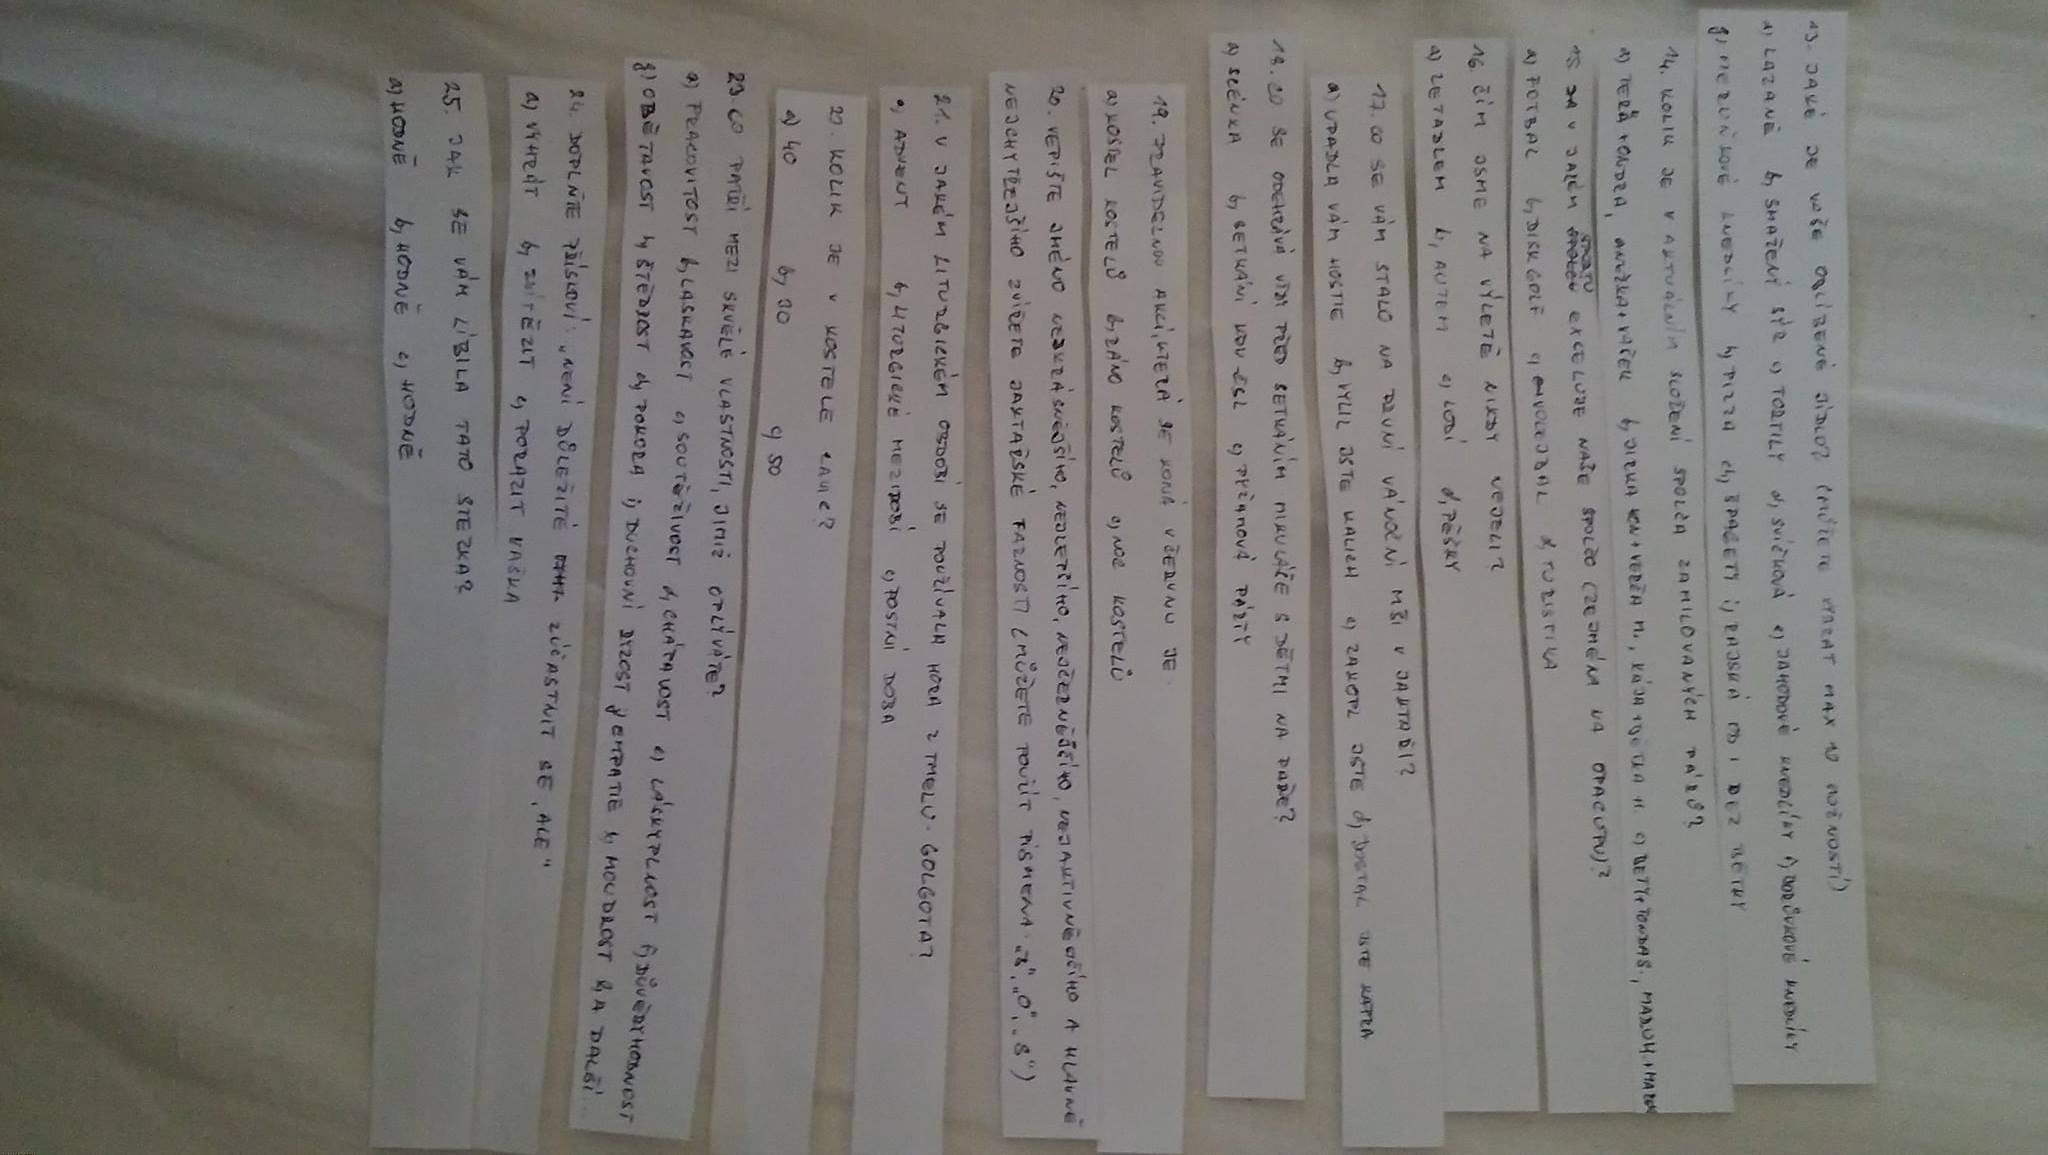 13. JAKÉ JE VAŠE OBLÍBENÉ JÍDLO? (MŮŽETE VYBRAT MAX 10 MOŽNOSTÍ)
a) LAZANĚ b) SMAŽENÝ SÝR c) TORTILY d) SVÍČKOVÁ e) JAHODOVÉ KNEDLÍKY f) BORŮVKOVÉ KNEDLÍKY
g) MERUŇKOVÉ KNEDLÍKY h) PIZZA ch) ŠPAGETY i) RAJSKÁ
14. KOLIK JE V AKTUÁLNÍM SLOŽENÍ SPOLČA ZAMILOVANÝCH PÁRŮ?
a) TERÁ+ONDRA, ANIČKA+VAŠEK b) JIRKA KON+VERČA M., KÁJA+BĚTKA H c)
15 JA V JAKÉM SPORTU EXCELUJE NAŠE SPOLČO (ZEJMÉNA NA OPACUPU)?
a) FOTBAL b) DISKGOLF c) VOLEJBAL d) TURISTIKA
16. ČÍM JSME NA VÝLETĚ NIKDY NEJELI?
a) LETADLEM b) AUTEM c) LODÍ d) PĚŠKY
17. CO SE VÁM STALO NA PRVNÍ VÁNOČNÍ MŠI V JAKTAŘI?
a) UPADLA VÁM HOSTIE b) VYLIL JSTE KALICH c) ZAKOPL JSTE d) DOSTAL JSTE KAPRA
18. CO SE ODEHRÁVÁ VŽDY PŘED SETKÁNÍM MIKULÁŠE S DĚTMI NA FAŘE?
a) SCÉNKA b) SETKÁNÍ c) PYŽAMOVÁ PÁRTY
19. PRAVIDELNOU AKCÍ, KTERÁ SE KONÁ V ČERVNU JE
a) KOSTEL KOSTELŮ b) RÁNO KOSTELŮ c) NOC KOSTELŮ
20. VEPIŠTE JMÉNO NEJKRÁSNĚJŠÍHO, NEJLEPŠÍHO, NEJČERNĚJŠÍHO, NEJAKTIVNĚJŠÍHO A HLAVNĚ
NEJCHYTŘEJŠÍHO ZVÍŘETE JAKTAŘSKÉ FARNOSTI (MŮŽETE POUŽÍT PÍSMENA „B“, „O“, „S“)
21. V JAKÉM LITURGICKÉM OBDOBÍ SE POUŽÍVALA HORA Z TMELU - GOLGOTA?
a) ADVENT b) LITURGICKÉ MEZIDOBÍ c) POSTNÍ DOBA
22. KOLIK JE V KOSTELE LAVIC?
a) 40 b) 30 c) 50
23. CO PATŘÍ MEZI SKVĚLÉ VLASTNOSTI, JIMIŽ OPLÝVÁTE?
a) PRACOVITOST b) LASKAVOST c) SOUTĚŽIVOST d) CHÁPAVOST e) LÁSKYPLNOST f) DŮVĚRYHODNOST
g) OBĚTAVOST h) ŠTĚDROST ch) POKORA i) DUCHOVNÍ j) EMPATIE k) MOUDROST l) A DALŠÍ...
24. DOPLŇTE PŘÍSLOVÍ: „NENÍ DŮLEŽITÉ ZÚČASTNIT SE, ALE“
a) VYHRÁT b) ZVÍTĚZIT c) PORAZIT VAŠKA
25. JAK SE VÁM LÍBILA TATO STEZKA?
a) HODNĚ b) HODNĚ c) HODNĚ